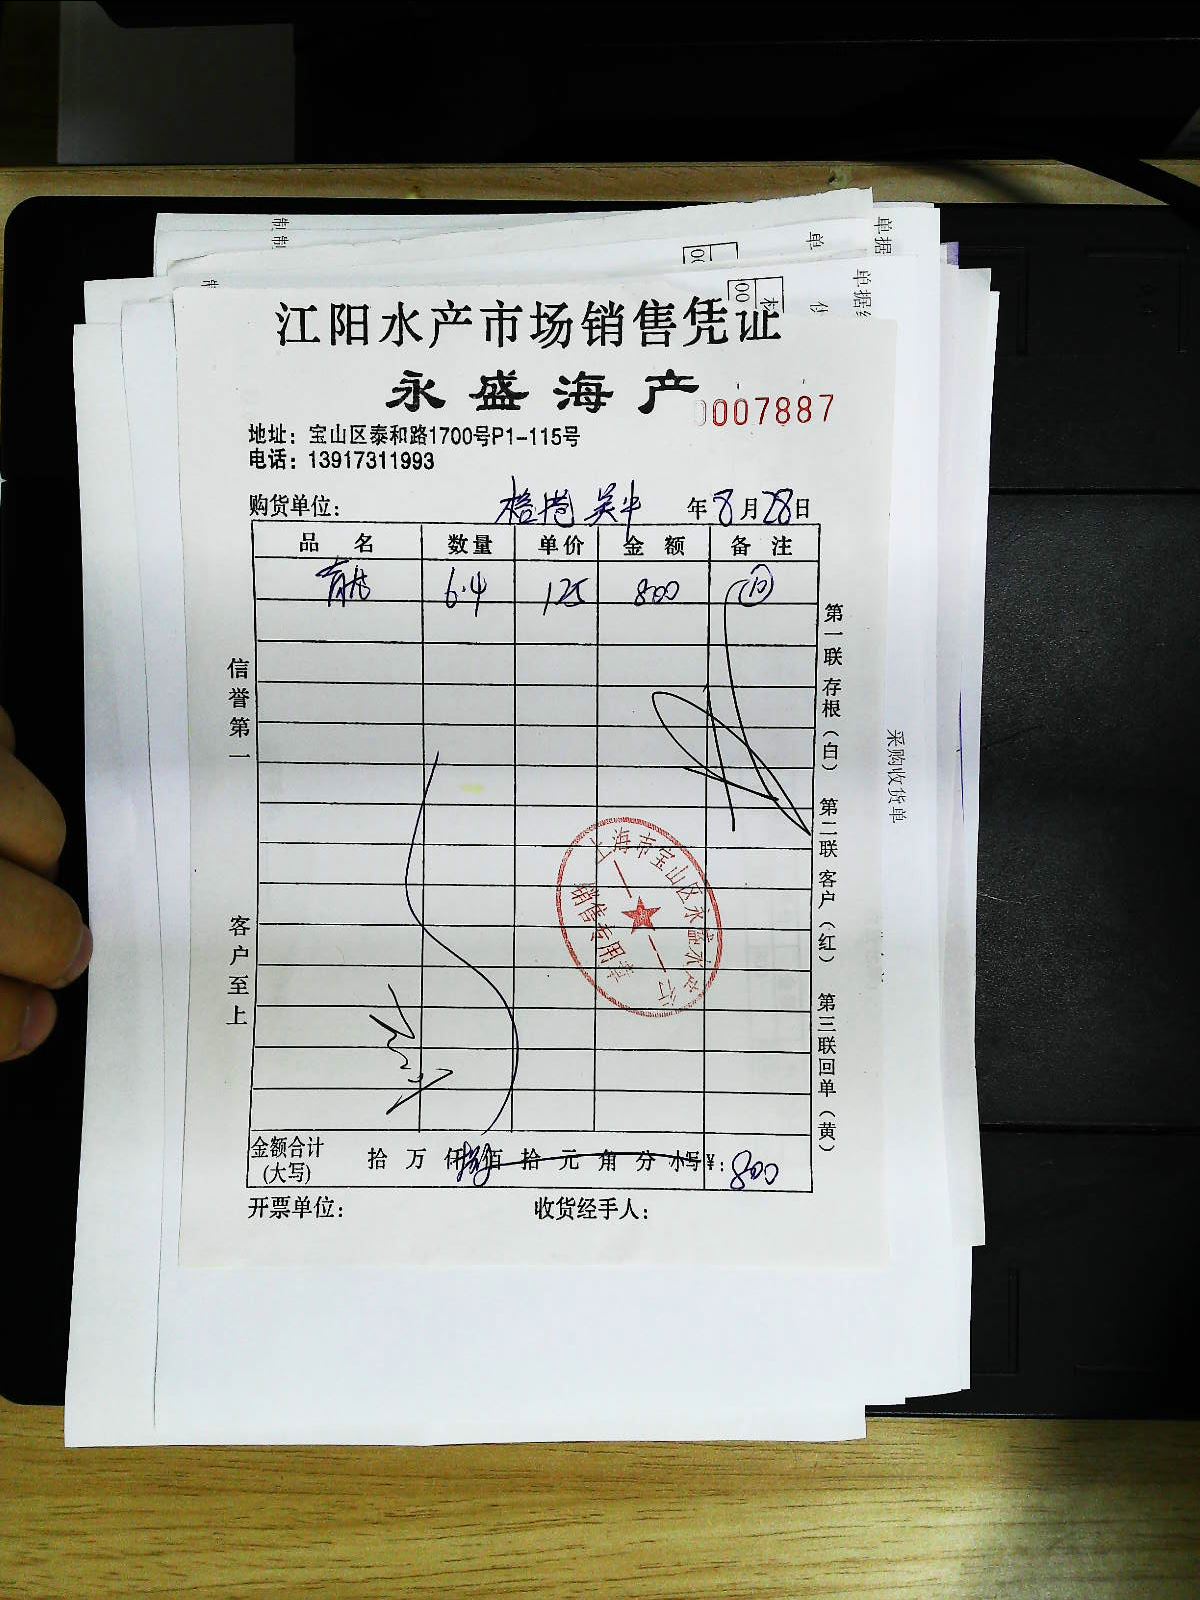 单据
单
制 制
00
单据
00
江阳水产市场销售凭证
永盛海产
0007887
地址：宝山区泰和路1700号P1-115号
电话：13917311993
购货单位： 年8月28日
品名 数量 单价 金额 备注
6.4 125 800
信誉第一
客户至上
第一联 存根（白） 第二联 客户（红） 第三联 回单（黄）
采购收货单
上海市宝山区永盛水产行
销售专用章
金额合计（大写） 拾 万 仟 捌 佰 拾 元 角 分 小写¥：800
开票单位： 收货经手人：